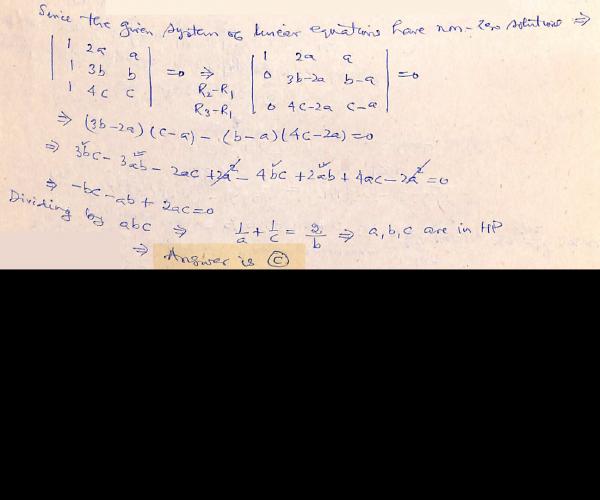 Since the given system of linear equations have non-zero solutions ⇒
| 1 2a a | | 1 2a a |
| 1 3b b | =0 ⇒ | 0 3b-2a b-a | =0
| 1 4c c | R2-R1 R3-R1 | 0 4c-2a c-a |
⇒ (3b-2a)(c-a) - (b-a)(4c-2a)=0
⇒ 3bc - 3ab - 2ac + 2a² - 4bc + 2ab + 4ac - 2a² =0
⇒ -bc - ab + 2ac=0
Dividing by abc ⇒ 1/a + 1/c = 2/b ⇒ a,b,c are in HP
⇒ Answer is Ⓒ